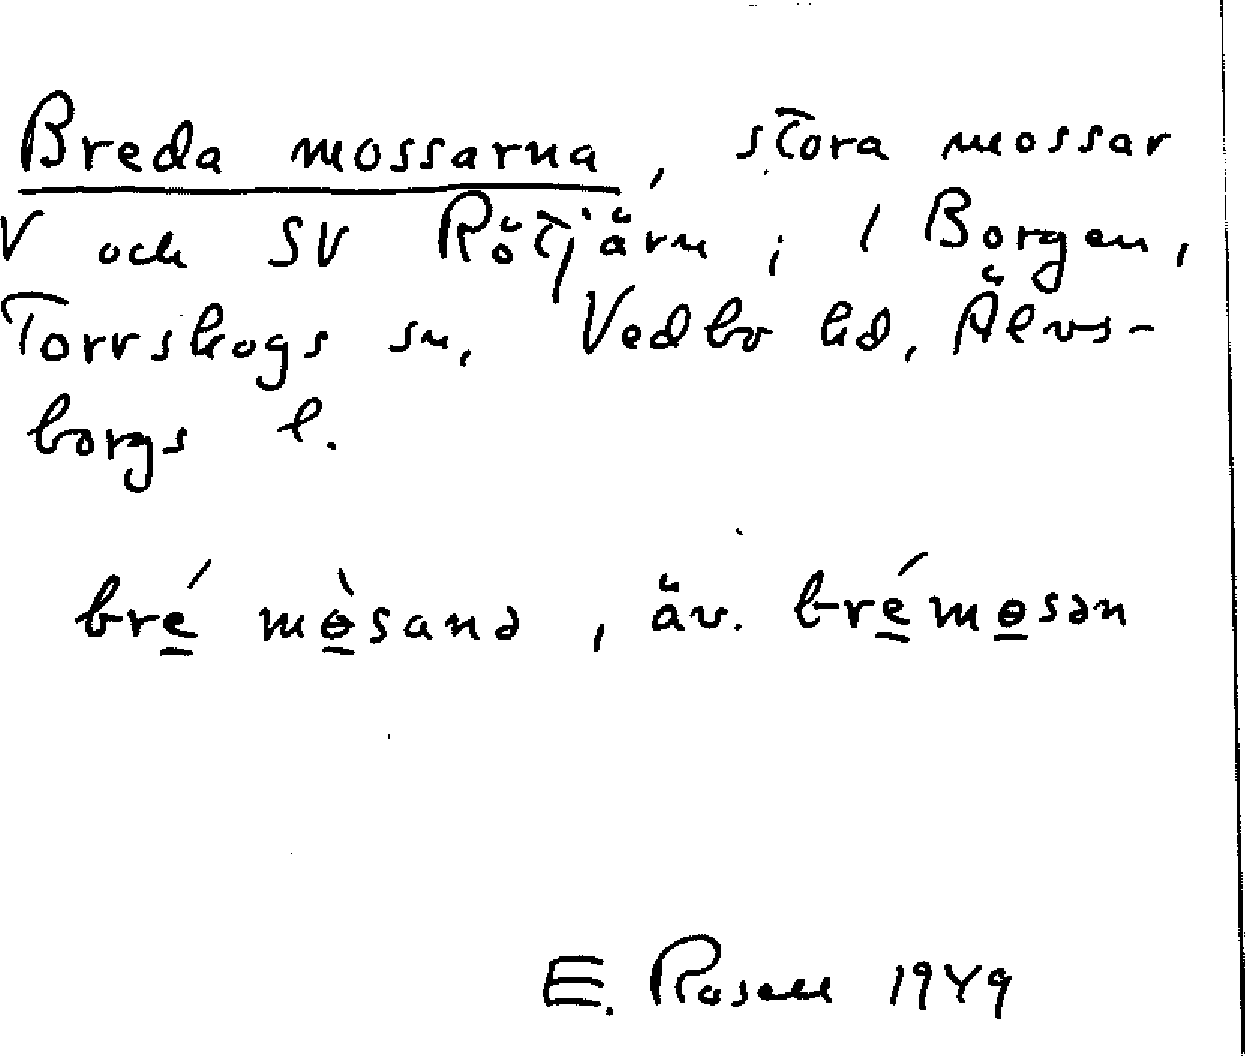 Breda mossarna, stora mossar
V och SV Rötjärn, i Borgen,
Torrskogs sn, Vedbo hd, Älvs-
borgs l.
bre̲´ mɵ̲̀sanə, äv. bre̲´mɵ̲sən
E. Rosell 1949